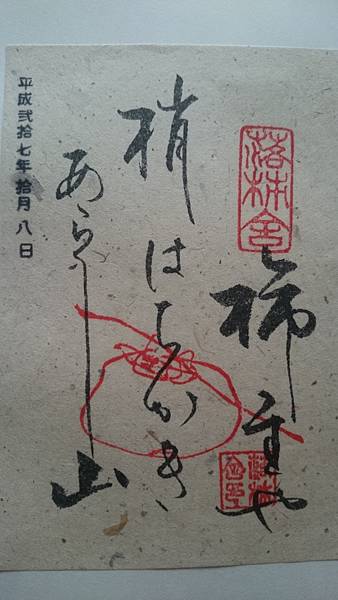 落柿舎
柿主や
梢はちかき
あらし山
平成弐拾七年拾月八日